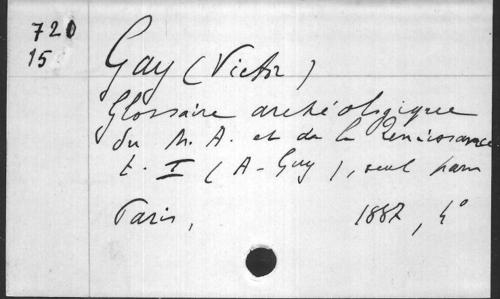 720
15
Gay (Victor)
Glossaire archéologique
du M. A. et de la Renaissance
t. I (A - Guy), seul paru
Paris, 1887, 4°